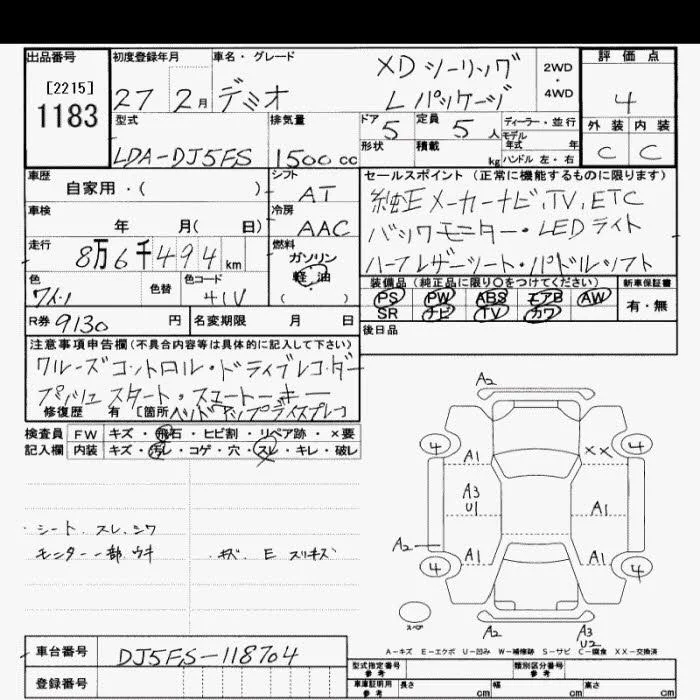 出品番号 初度登録年月 車名・グレード 評価点
[2215]
1183
27 2月 デミオ XDツーリング
Lパッケージ
2WD
・
4WD
4
型式 排気量 ドア 定員 ディーラー・並行 外装 内装
LDA-DJ5FS 1500cc 5 5人 モデル年式 年 C C
形状 積載 kg ハンドル 左・右
車歴 シフト セールスポイント (正常に機能するものに限ります)
自家用・( ) AT 純正メーカーナビ、TV、ETC
車検 冷房
年 月( 日) AAC バックモニター・LEDライト
走行 8万6千494km 燃料 ガソリン
軽油
( )
ハーフレザーシート・パドルシフト
色 色替 色コード 装備品(純正品に限り○をつけてください) 新車保証書
ワイン 41V PS PW ABS エアB AW 有・無
SR ナビ TV カワ
R券 9130円 名変期限 月 日 後日品
注意事項申告欄(不具合内容等は具体的に記入して下さい)
クルーズコントロール・ドライブレコーダー
プッシュスタート・スマートキー
修復歴 有 [箇所 ヘッドアップディスプレイ
検査員 FW キズ・飛石・ヒビ割・リペア跡・×要
記入欄 内装 キズ・汚レ・コゲ・穴・スレ・キレ・破レ
シート、スレ、シワ
モニター一部ウキ ・キズ E スリキズ
A2
4 4
A1 XX
A3
U1
A1
A2
A1 A1
4 4
スペア
A2 A3
U2
A-キズ E-エクボ U-凹み W-補修跡 S-サビ C-腐食 XX-交換済
車台番号 DJ5FS-118704 型式指定番号
参考
類別区分番号
参考
登録番号 車庫証明用
参考
長さ cm 幅 cm 高さ cm